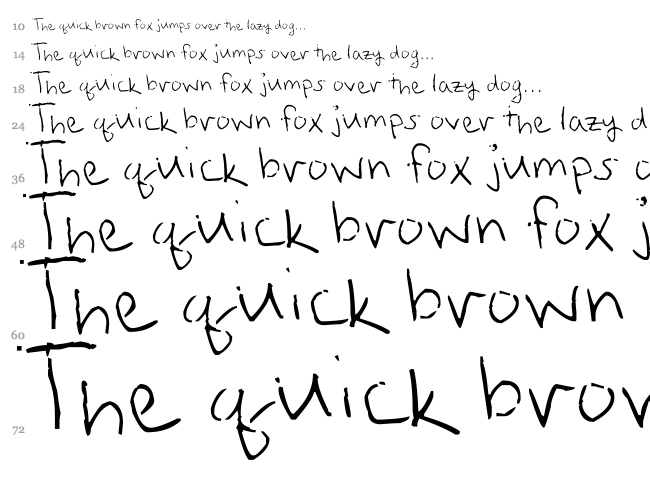 10 The quick brown fox jumps over the lazy dog...
14 The quick brown fox jumps over the lazy dog...
18 The quick brown fox jumps over the lazy dog...
24 The quick brown fox jumps over the lazy d
36 The quick brown fox jumps o
48 The quick brown fox j
60 The quick brown
72 The quick brow